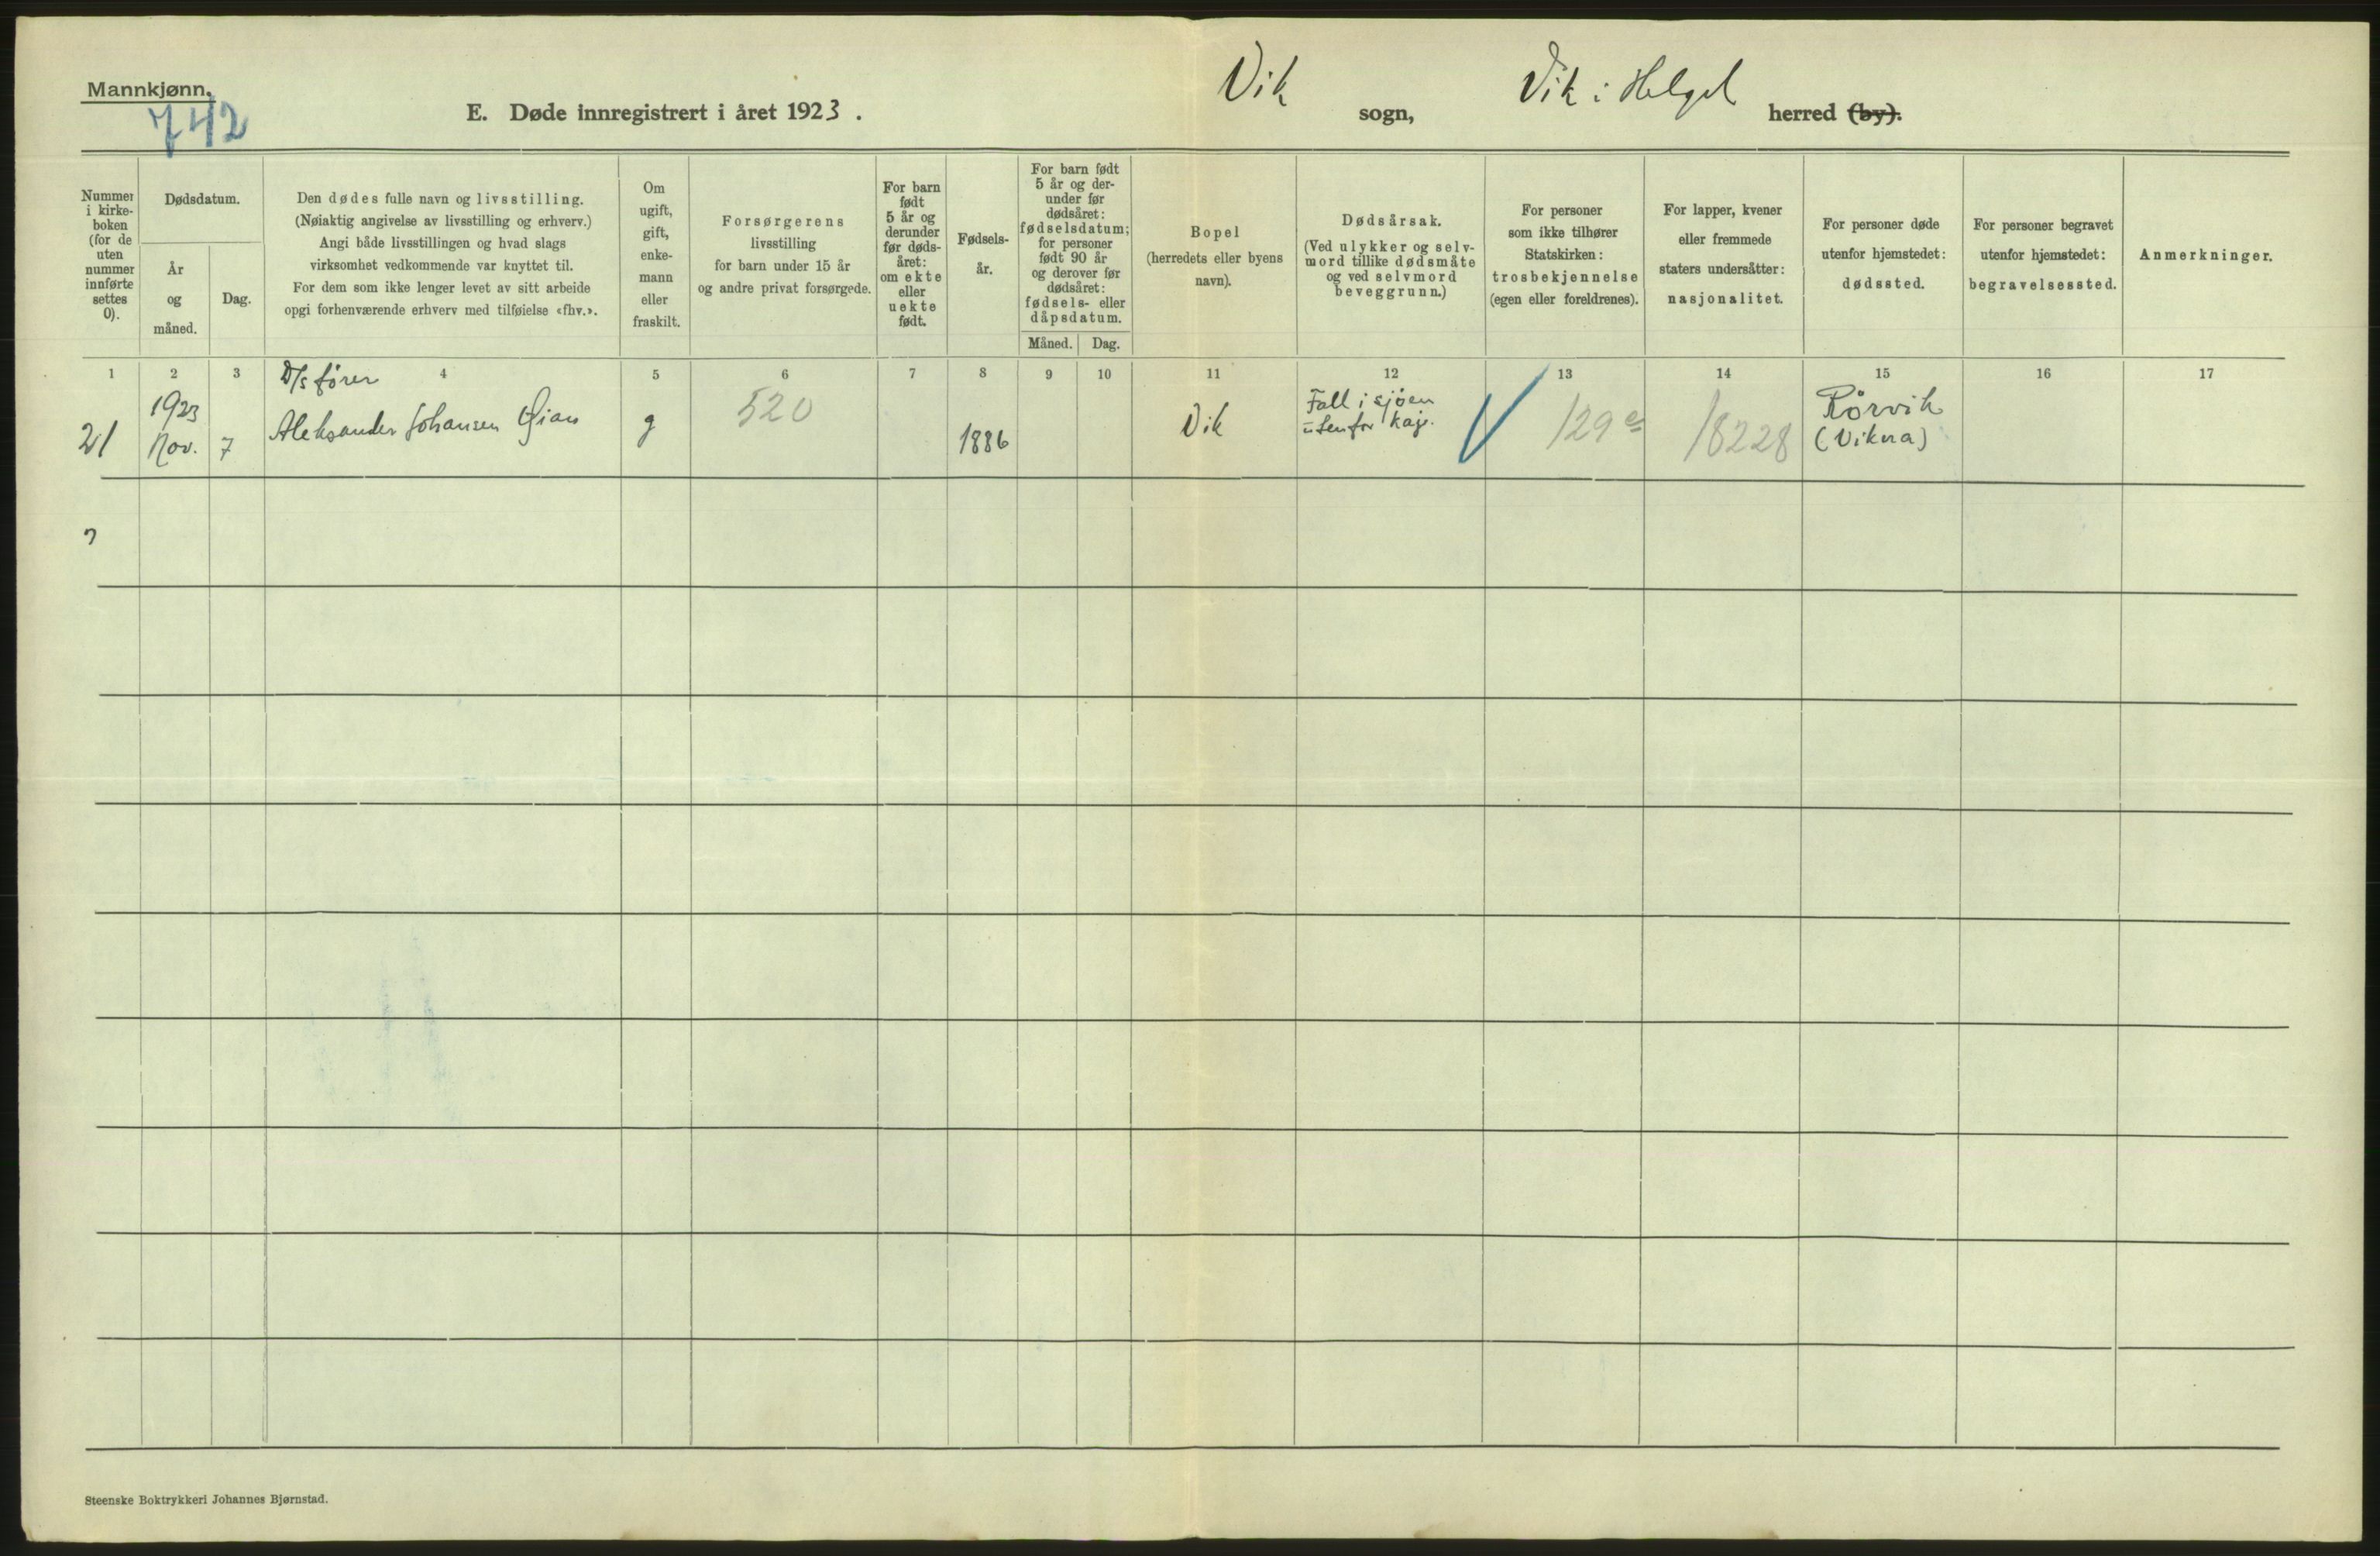 Mannkjønn.
742
E. Døde innregistrert i året 1923.
Vik sogn, Vik i Helgel herred (by).
Nummer
i kirke-
boken
(for de
uten
nummer
innførte
settes
0).
Dødsdatum.
År
og
måned.
Dag.
Den dødes fulle navn og livsstilling.
(Nøiaktig angivelse av livsstilling og erhverv.)
Angi både livsstillingen og hvad slags
virksomhet vedkommende var knyttet til.
For dem som ikke lenger levet av sitt arbeide
opgi forhenværende erhverv med tilføielse «fhv.».
Om
ugift,
gift,
enke-
mann
eller
fraskilt.
Forsørgerens
livsstilling
for barn under 15 år
og andre privat forsørgede.
For barn
født
5 år og
derunder
før døds-
året:
om ekte
eller
uekte
født.
Fødsels-
år.
For barn født
5 år og der-
under før
dødsåret:
fødselsdatum;
for personer
født 90 år
og derover før
dødsåret:
fødsels- eller
dåpsdatum.
Måned.
Dag.
Bopel
(herredets eller byens
navn).
Dødsårsak.
(Ved ulykker og selv-
mord tillike dødsmåte
og ved selvmord
beveggrunn.)
For personer
som ikke tilhører
Statskirken:
trosbekjennelse
(egen eller foreldrenes).
For lapper, kvener
eller fremmede
staters undersåtter:
nasjonalitet.
For personer døde
utenfor hjemstedet:
dødssted.
For personer begravet
utenfor hjemstedet:
begravelsessted.
Anmerkninger.
1 2 3 4 5 6 7 8 9 10 11 12 13 14 15 16 17
21
1923
Nov.
7
D/s fører
Aleksander Johansen
g
520
1886
Vik
Fall i sjøen
utenfor kaje.
129
18228
Rørvik
(Vikna)
Steenske Boktrykkeri Johannes Bjørnstad.